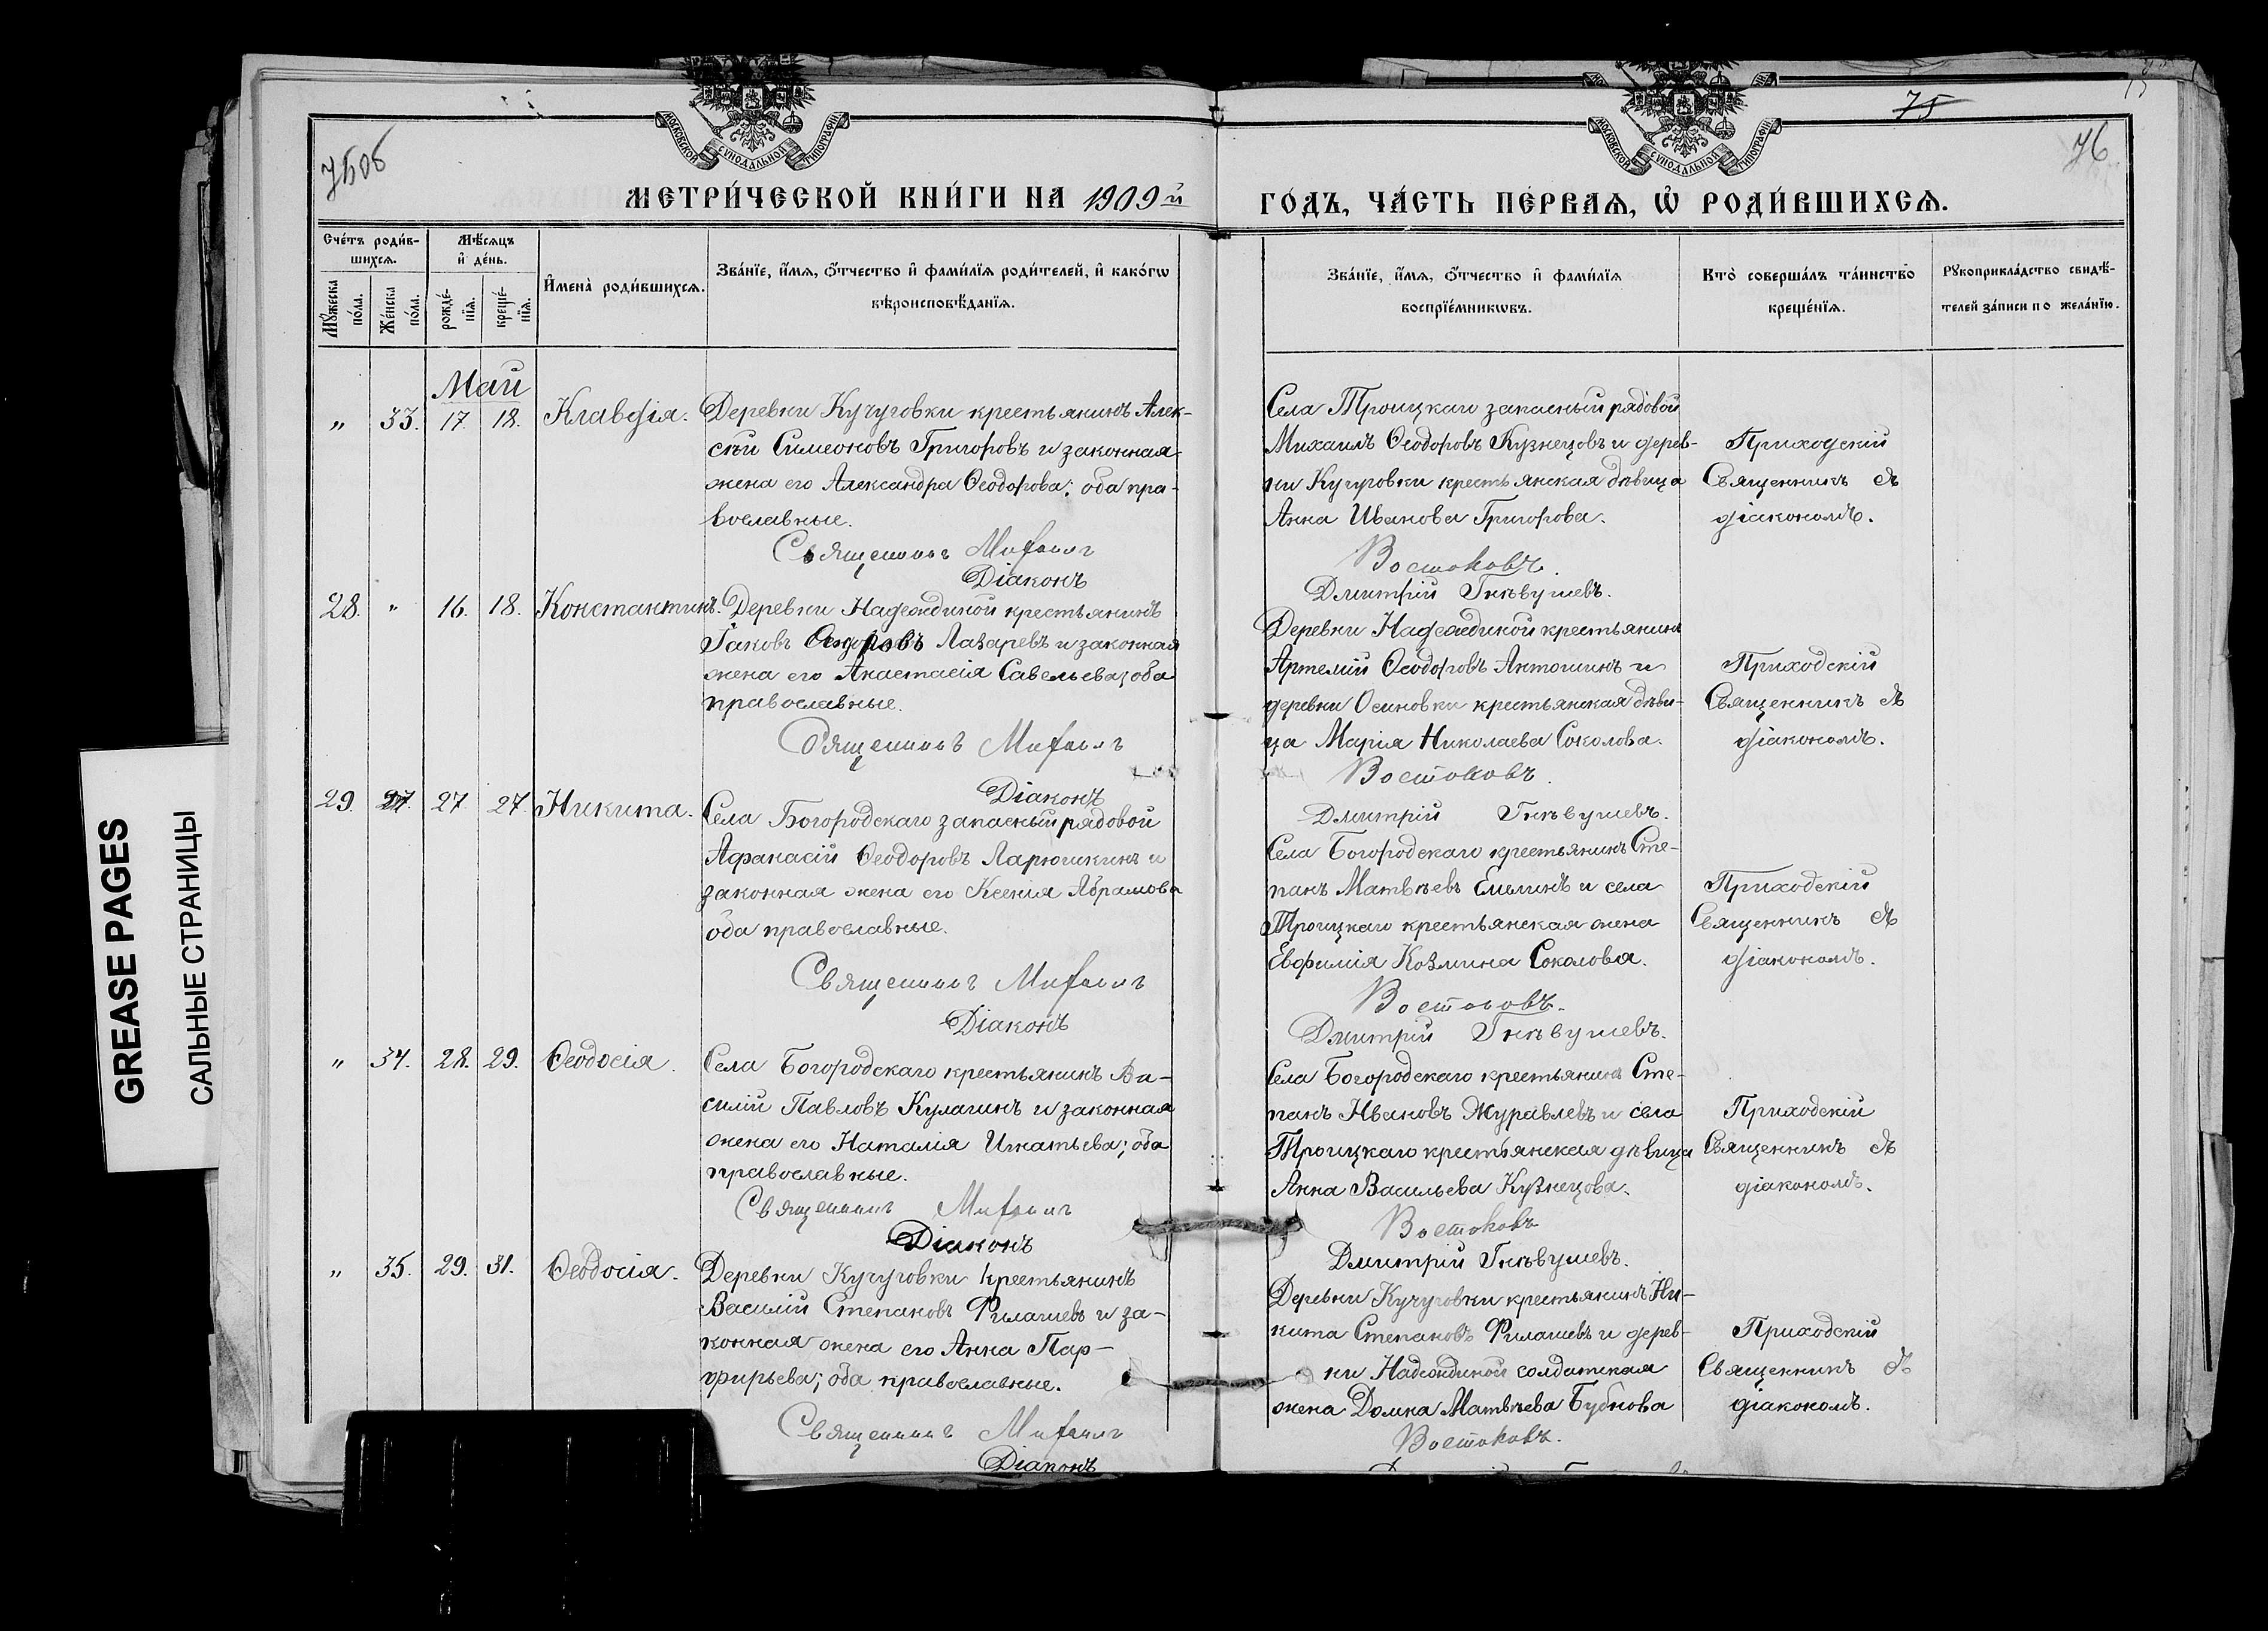 75об
75
76
МОСКОВСКОЙ СѴНОДАЛЬНОЙ ТИПОГРАФІИ
МОСКОВСКОЙ СѴНОДАЛЬНОЙ ТИПОГРАФІИ
МЕТРИ́ЧЕСКОЙ КНИ́ГИ НА 1909й
ГО́ДЪ, ЧА́СТЬ ПЕ́РВАѦ, Ѡ҆ РОДИ́ВШИХСѦ.
Сче́тъ роди́в-
шихсѧ.
Мꙋ́жеска по́ла.
Же́нска по́ла.
Мѣ́сѧцъ
и҆ де́нь.
рожде́-
нїѧ.
креще́-
нїѧ.
И҆мена̀ роди́вшихсѧ.
Зва́нїе, и҆́мѧ, ѻ҆́тчество и҆ фами́лїѧ роди́телей, и҆ како́гѡ
вѣроисповѣ́данїѧ.
Зва́нїе, и҆́мѧ, ѻ҆́тчество и҆ фами́лїѧ
воспрїе́мникѡвъ.
Кто̀ соверша́лъ та́инство
креще́нїѧ.
Рꙋкоприкла́дство свидѣ́-
телей за́писи по жела́нїю.
Май
„ 33. 17. 18. Клавдія.
Деревни Кучуговки крестьянинъ Алек-
сѣй Симеоновъ Григоровъ и законная
жена его Александра Ѳеодорова; оба пра-
вославные.
Священникъ Михаилъ
Діаконъ
Села Троицкаго запасный рядовой
Михаилъ Ѳеодоровъ Кузнецовъ и дерев-
ни Кучуговки крестьянская дѣвица
Анна Иванова Григорова.
Востоковъ.
Дмитрій Гнѣвушевъ.
Приходскій
Священникъ съ
діакономъ.
28. „ 16. 18. Константинъ.
Деревни Надеждиной крестьянинъ
Іаковъ Ѳеодоровъ Лазаревъ и законная
жена его Анастасія Савельева; оба
православные.
Священникъ Михаилъ
Діаконъ
Деревни Надеждиной крестьянинъ
Артемій Ѳеодоровъ Антошинъ и
деревни Осиновки крестьянская дѣви-
ца Марія Николаева Соколова.
Востоковъ.
Дмитрій Гнѣвушевъ.
Приходскій
Священникъ съ
діакономъ.
29. 27. 27. Никита.
Села Богородскаго запасный рядовой
Афанасій Ѳеодоровъ Ларюшкинъ и
законная жена его Ксенія Абрамова
оба православные.
Священникъ Михаилъ
Діаконъ
Села Богородскаго крестьянинъ Сте-
панъ Матвѣевъ Емелинъ и села
Троицкаго крестьянская жена
Евфимія Козмина Соколова.
Востоковъ.
Дмитрій Гнѣвушевъ.
Приходскій
Священникъ съ
діакономъ.
„ 34. 28. 29. Ѳеодосія.
Села Богородскаго крестьянинъ Ва-
силій Павловъ Кулагинъ и законная
жена его Наталія Игнатьева; оба
православные.
Священникъ Михаилъ
Діаконъ
Села Богородскаго крестьянинъ Сте-
панъ Ивановъ Журавлевъ и села
Троицкаго крестьянская дѣвица
Анна Васильева Кузнецова.
Востоковъ
Дмитрій Гнѣвушевъ.
Приходскій
Священникъ съ
діакономъ.
„ 35. 29. 31. Ѳеодосія.
Деревни Кучуговки крестьянинъ
Василій Степановъ Филашевъ и за-
конная жена его Анна Пар-
фирьева; оба православные.
Священникъ Михаилъ
Діаконъ
Деревни Кучуговки крестьянинъ Ни-
кита Степановъ Филашевъ и дерев-
ни Надеждиной солдатская
жена Домна Матвѣева Бубнова
Востоковъ.
Приходскій
Священникъ съ
діакономъ.
GREASE PAGES
САЛЬНЫЕ СТРАНИЦЫ